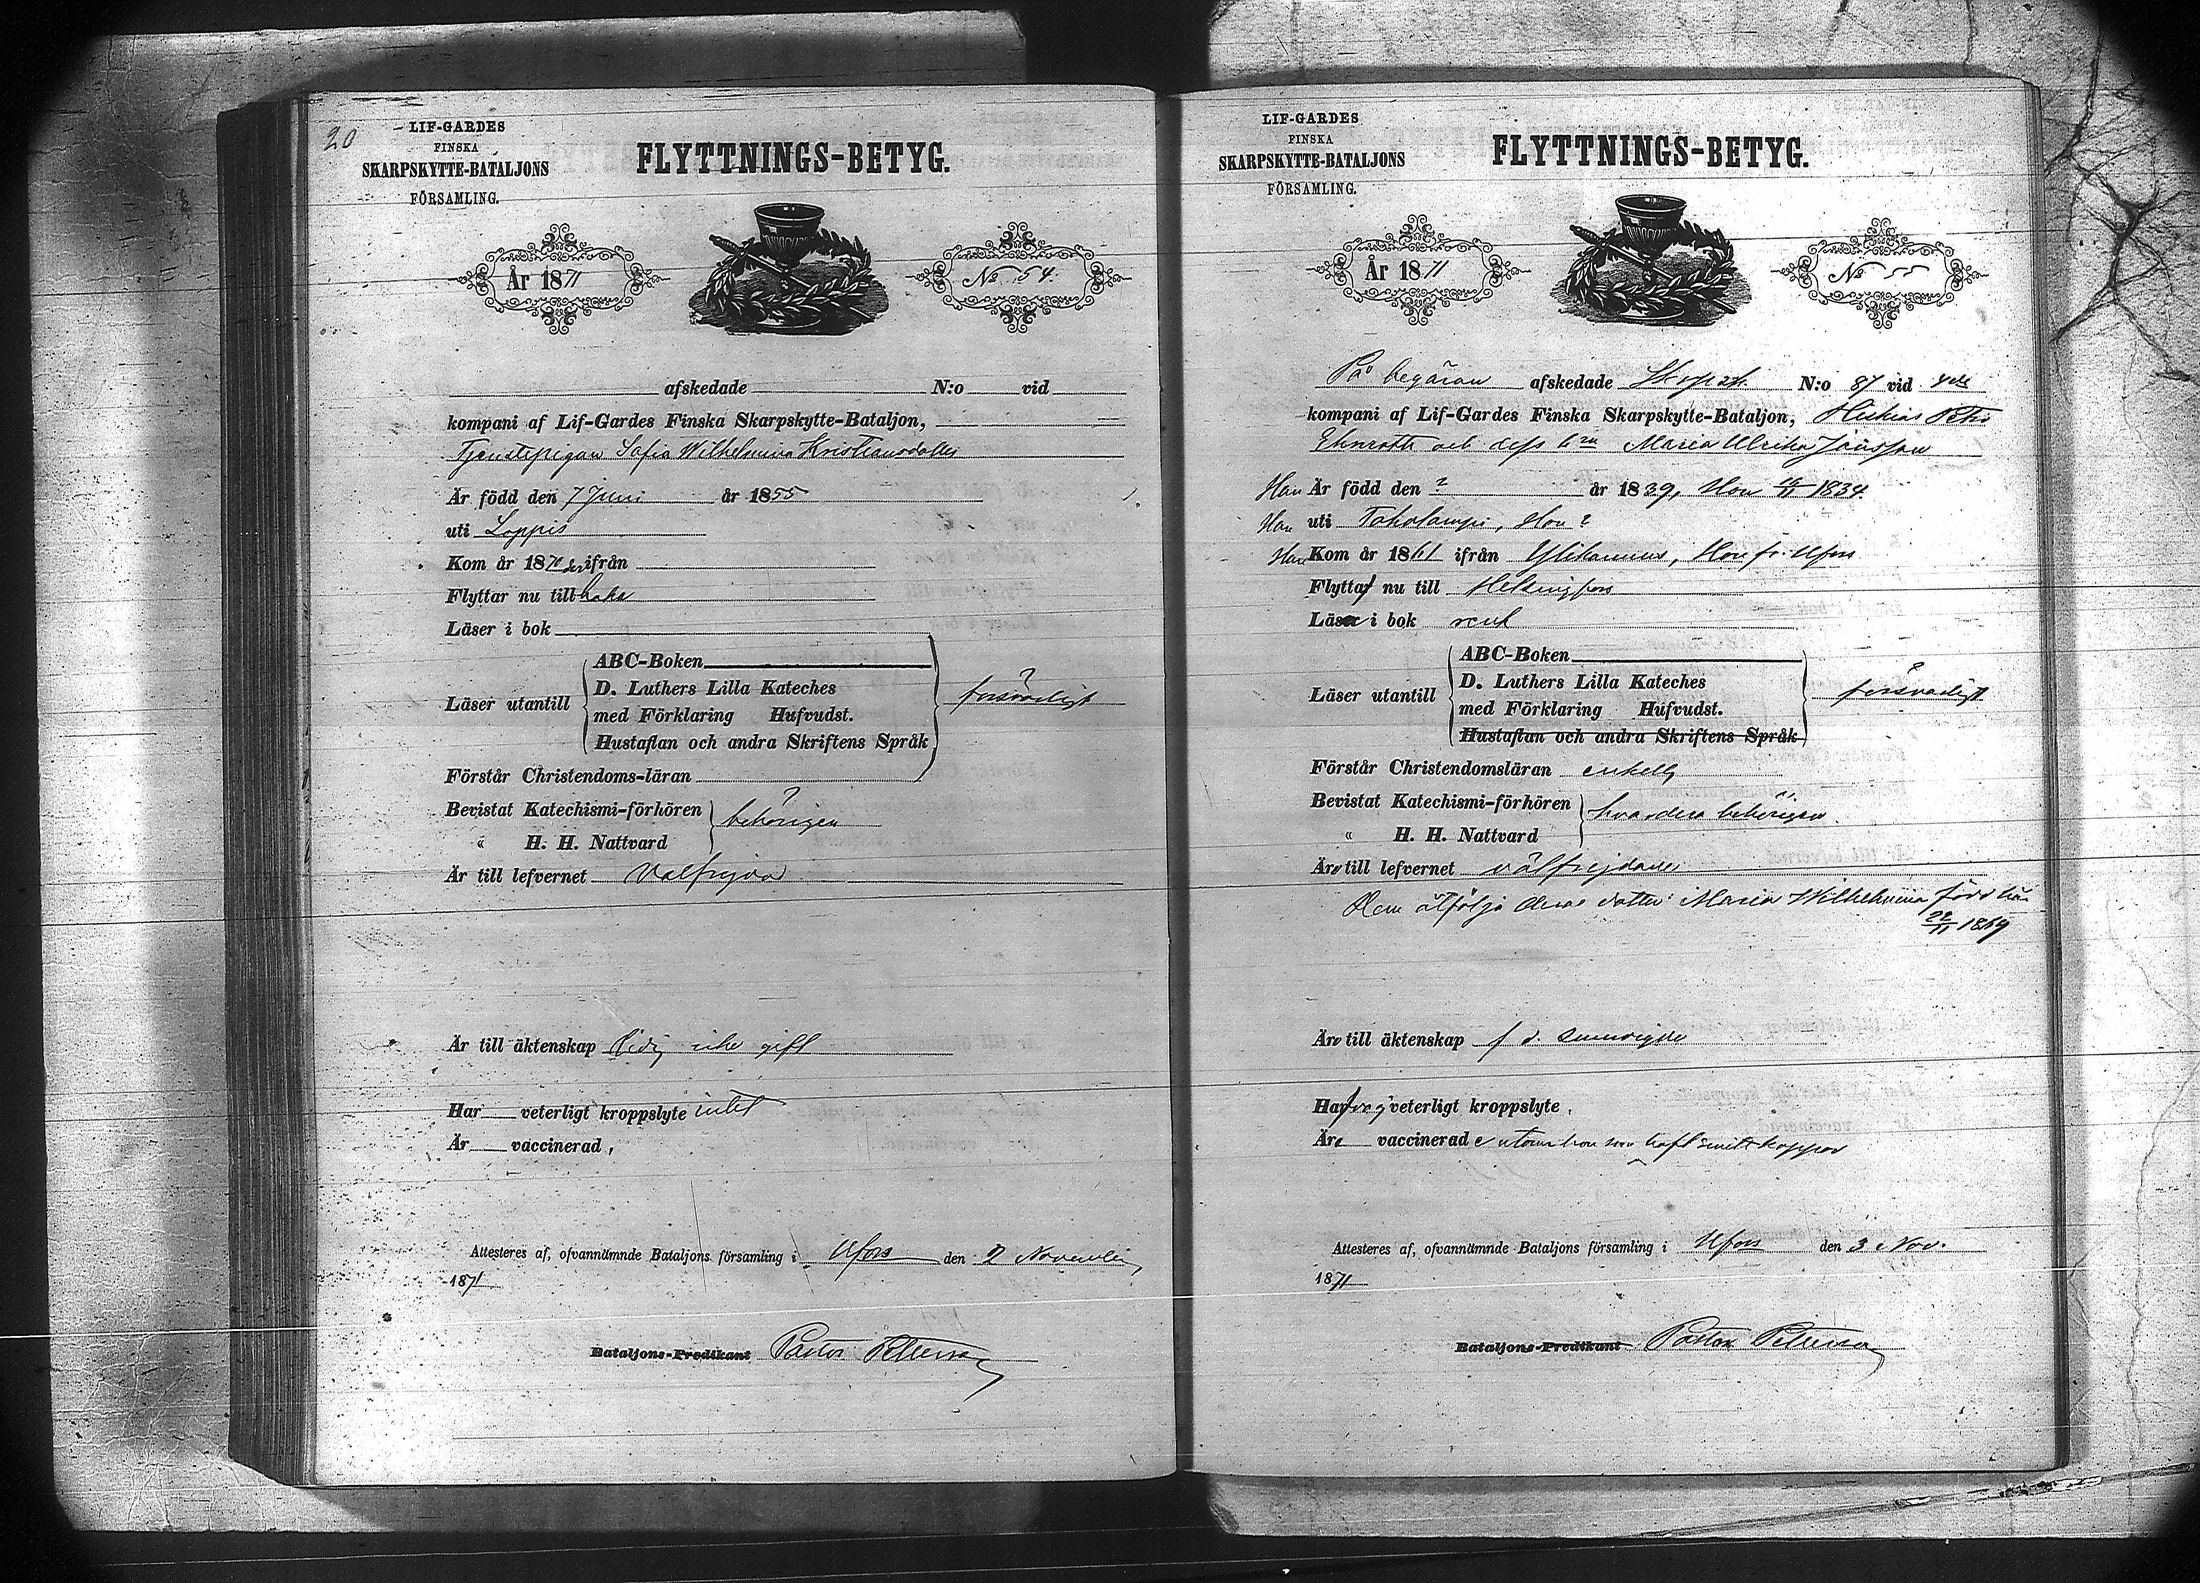 20
LIF-GARDES
FINSKA
SKARPSKYTTE-BATALJONS
FÖRSAMLING.
FLYTTNINGS-BETYG.
År 1871
No 54.
afskedade N:o vid
kompani af Lif-Gardes Finska Skarpskytte-Bataljon,
Tjenstepigan Sofia Wilhelmina Kristiansdotter
Är född den 7 Juni år 1855
uti Loppis
Kom år 1870 ifrån
Flyttar nu tillbaka
Läser i bok
ABC-Boken
Läser utantill D. Luthers Lilla Kateches
med Förklaring Hufvudst.
Hustaflan och andra Skriftens Språk
försvarligt
Förstår Christendoms-läran
Bevistat Katechismi-förhören
" H. H. Nattvard
behörigen
Är till lefvernet välfrejdad
Är till äktenskap ledig icke gift
Har veterligt kroppslyte intet
Är vaccinerad,
Attesteres af, ofvannämnde Bataljons församling i Hfors den 2 November
1871
Bataljons-Predikant Pastor
LIF-GARDES
FINSKA
SKARPSKYTTE-BATALJONS
FÖRSAMLING.
FLYTTNINGS-BETYG.
År 1871
No 55
På begäran afskedade N:o 87 vid 4de
kompani af Lif-Gardes Finska Skarpskytte-Bataljon,
och dess Maria Ulrika
Han Är född den ? år 1839, Hon 1834
Han uti Toholampi, Hon ?
Han Kom år 1861 ifrån Ylikannus, Hon fr. Hfors
Flytta nu till Helsingfors
Läsa i bok rent
ABC-Boken
Läser utantill D. Luthers Lilla Kateches
med Förklaring Hufvudst.
Hustaflan och andra Skriftens Språk
försvarligt
Förstår Christendomsläran enkelt
Bevistat Katechismi-förhören
" H. H. Nattvard
hvardera behörigen.
Äro till lefvernet välfrejdade
Dem åtfölja deras dotter Maria Wilhelmina född
22/11 1869
Äro till äktenskap
Ha ej veterligt kroppslyte,
Äro vaccinerade utom hon som haft smittkoppor
Attesteres af, ofvannämnde Bataljons församling i Hfors den 3 Nov.
1871
Bataljons-Predikant Pastor